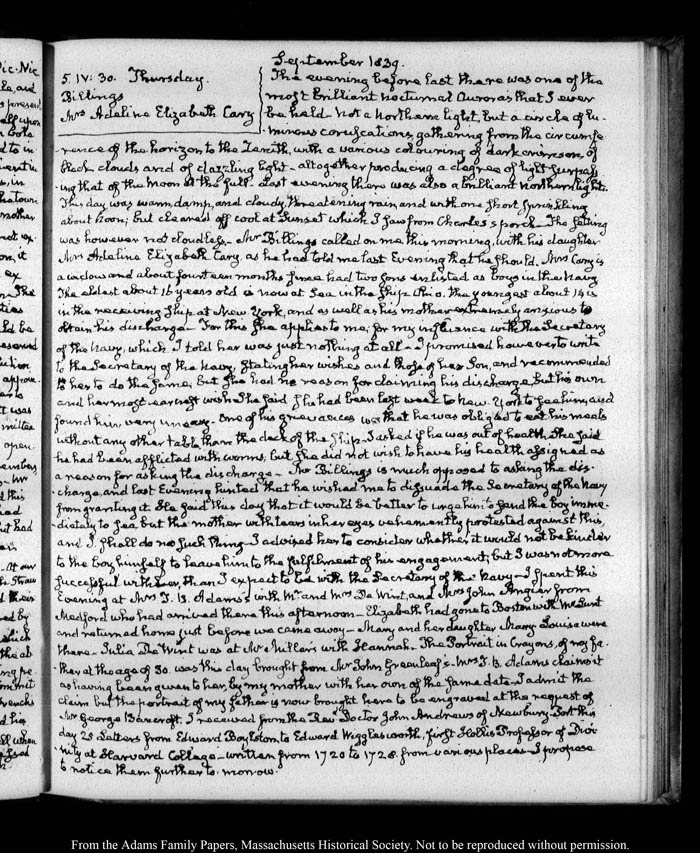 September 1839.
5. IV: 30. Thursday.
Billings
Mrs Adeline Elizabeth Cary
The evening before last there was one of the
most brilliant nocturnal Auroras that I ever
beheld. not a Northern light, but a circle of lu-
minous coruscations, gathering from the circumfe-
rence of the horizon to the Zenith, with a various colouring of dark crimson, of
black clouds and of dazzling light - altogether producing a degree of light surpass-
ing that of the Moon at the full. Last evening there was also a brilliant Northern light.
This day was warm, damp, and cloudy, threatening rain, and with one short sprinkling
about Noon; but cleared off cool at Sunset which I saw from Charles's porch - The setting
was however not cloudless - Mr Billings called on me this morning, with his daughter
Mrs Adeline Elizabeth Cary, as he had told me last Evening that he should. Mrs Cary is
a widow and about fourteen months since had two sons enlisted as boys in the Navy
The eldest about 16 years old is now at Sea in the Ship Ohio. the youngest about 14 is
in the receiving Ship at New York, and as well as his mother extremely anxious to
obtain his discharge - For this she applies to me, for my influence with the Secretary
of the Navy, which I told her was just nothing at all - I promised however to write
to the Secretary of the Navy, stating her wishes and those of her Son, and recommended
to her to do the same, but she had no reason for claiming his discharge, but his own
and her most earnest wish. She said she had been last week to New York to see him, and
found him very uneasy. One of his grievances was that he was obliged to eat his meals
without any other table than the deck of the Ship. I asked if he was out of health. She said
he had been afflicted with worms, but she did not wish to have his health assigned as
a reason for asking the discharge - Mr Billings is much opposed to asking the dis-
charge, and last Evening hinted that he wished me to dissuade the Secretary of the Navy
from granting it. He said this day that it would be better to urge him to send the boy imme-
diately to Sea but the mother with tears in her eyes vehemently protested against this,
and I shall do no such thing - I advised her to consider whether it would not be kinder
to the boy himself to leave him to the fulfilment of his engagement, but I was not more
successful with her, than I expect to be with the Secretary of the Navy - I spent this
Evening at Mrs T. B. Adams's with Mr and Mrs De Wint, and Mrs John Angier from
Medford who had arrived there this afternoon - Elizabeth had gone to Boston with Mr Lunt
and returned home just before we came away - Mary and her daughter Mary Louisa were
there - Julia De Wint was at Mr Miller's with Hannah - The Portrait in Crayons, of my fa-
ther at the age of 30. was this day brought from Mr John Greenleaf's - Mrs T. B. Adams claims it
as having been given to her, by my mother with her own of the same date. I admit the
claim but the portrait of my father is now brought here to be engraved at the request of
Mr George Bancroft. I received from the Revd Doctor John Andrews of Newbury-Port this
day 25 Letters from Edward Boylston to Edward Wigglesworth, first Hollis Professor of Divi-
nity at Harvard College - written from 1720 to 1726. from various places - I propose
to notice them further to-morrow.
From the Adams Family Papers, Massachusetts Historical Society. Not to be reproduced without permission.